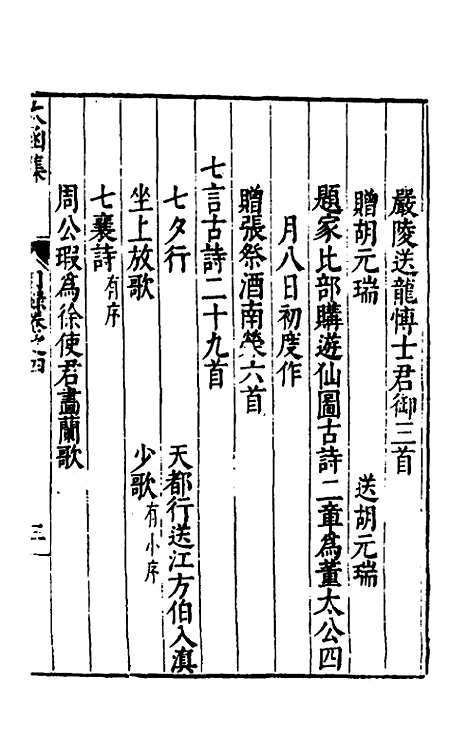 嚴陵送龍愽士君御三首
贈胡元瑞 送胡元瑞
題家比部購遊仙圖古詩二章爲董太公四
月八日初度作
贈張祭酒南六首
七言古詩二十九首
七夕行 天都行送江方伯入滇
坐上放歌 少歌有小序
七襄詩有序
周公瑕爲徐使君畫蘭歌
太函集 目錄卷 三